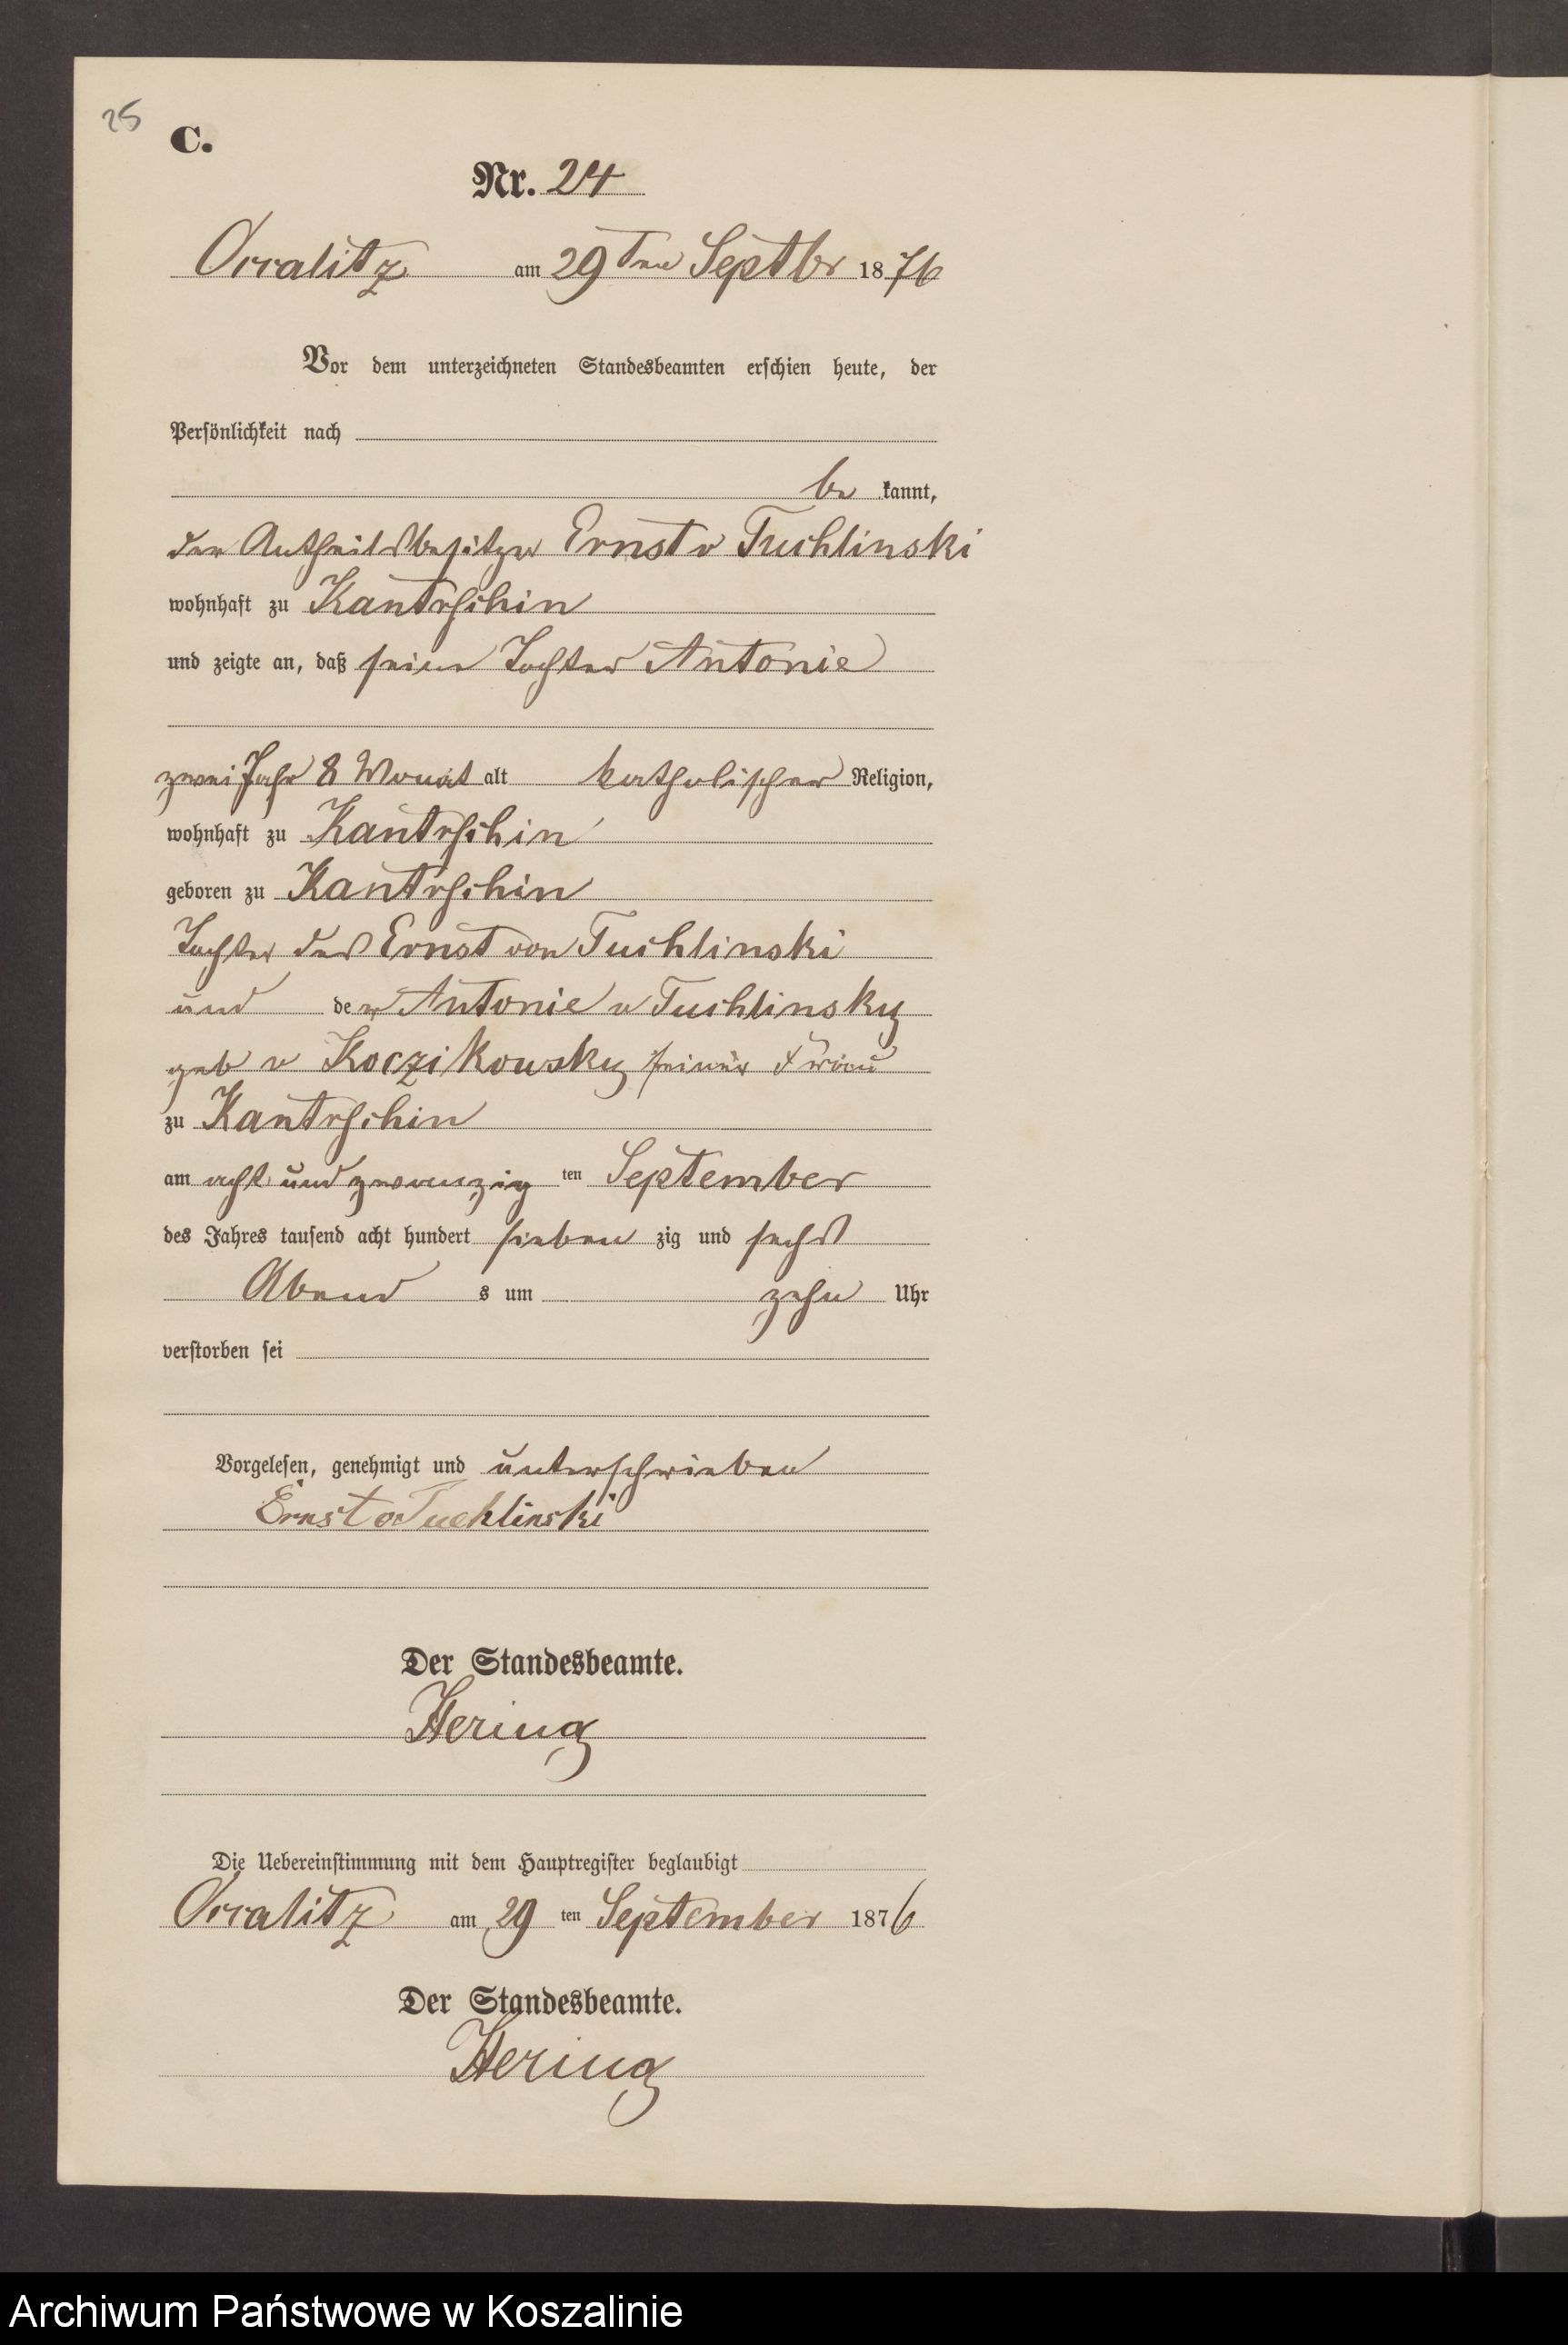 25
C.
Nr. 24
Occalitz am 29 ten Septbr 1876
Vor dem unterzeichneten Standesbeamten erschien heute, der
Persönlichkeit nach
be kannt,
der Antheilsbesitzer Ernst v Tuchlinski
wohnhaft zu Kantrschin
und zeigte an, daß seine Tochter Antonie
zwei Jahr 8 Monat alt katholischer Religion,
wohnhaft zu Kantrschin
geboren zu Kantrschin
Tochter des Ernst von Tuchlinski
und der Antonie v Tuchlinsky
geb v Koczikowsky seiner Frau
zu Kantrschin
am acht und zwanzig ten September
des Jahres tausend acht hundert sieben zig und sechs
Abend s um zehn Uhr
verstorben sei
Vorgelesen, genehmigt und unterschrieben
Ernst v Tuchlinski
Der Standesbeamte.
Hering
Die Uebereinstimmung mit dem Hauptregister beglaubigt
Occalitz am 29 ten September 1876
Der Standesbeamte.
Hering
Archiwum Państwowe w Koszalinie